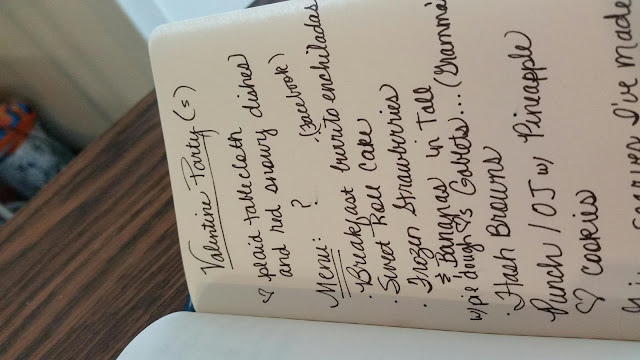 Valentine Party (s)
♡ plaid tablecloth
and red snowy dishes
Menu: ? (Facebook)
· Breakfast burrito enchiladas
· Sweet Roll Cake
· Frozen Strawberries
& Bananas in Tall
w/pie dough ♡s Goblets... (Gramma
· Hash Browns
Punch / OJ w/ Pineapple
♡ cookies
I've made